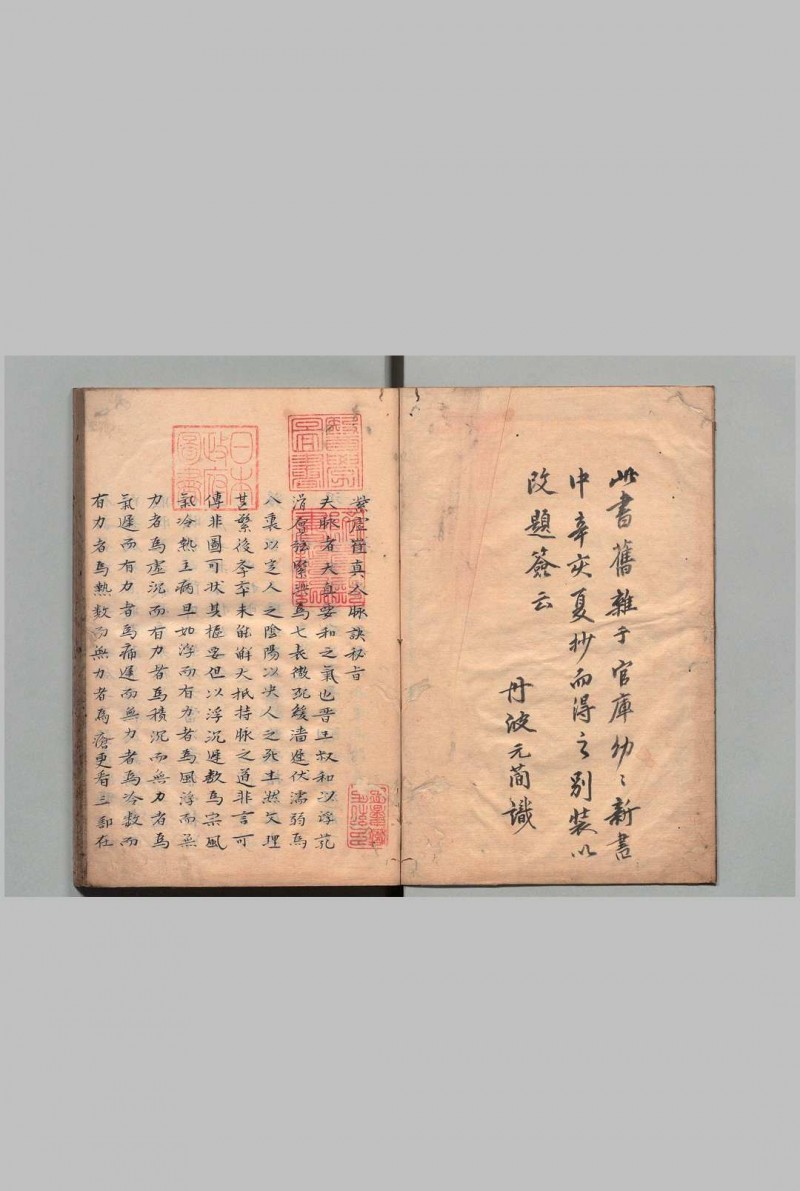 此書舊雜于官庫幼〻新書
中辛亥夏抄而得之別裝以
改題簽云
丹波元簡識
紫虛崔真人脉訣秘旨
夫脉者天真委和之氣也晉王叔和以浮芤
滑實弦緊洪為七表微沉緩濇遲伏濡弱為
八裏以定人之陰陽以决人之死生然文理
甚繁後學卒未能解大抵持脉之道非言可
傳非圖可狀其樞要但以浮沉遲數為宗風
氣冷熱主病且如浮而有力者為風浮而無
力者為虛沉而有力者為積沉而無力者為
氣遲而有力者為痛遲而無力者為冷數而
有力者為熱數而無力者為瘡更看三部在
日本